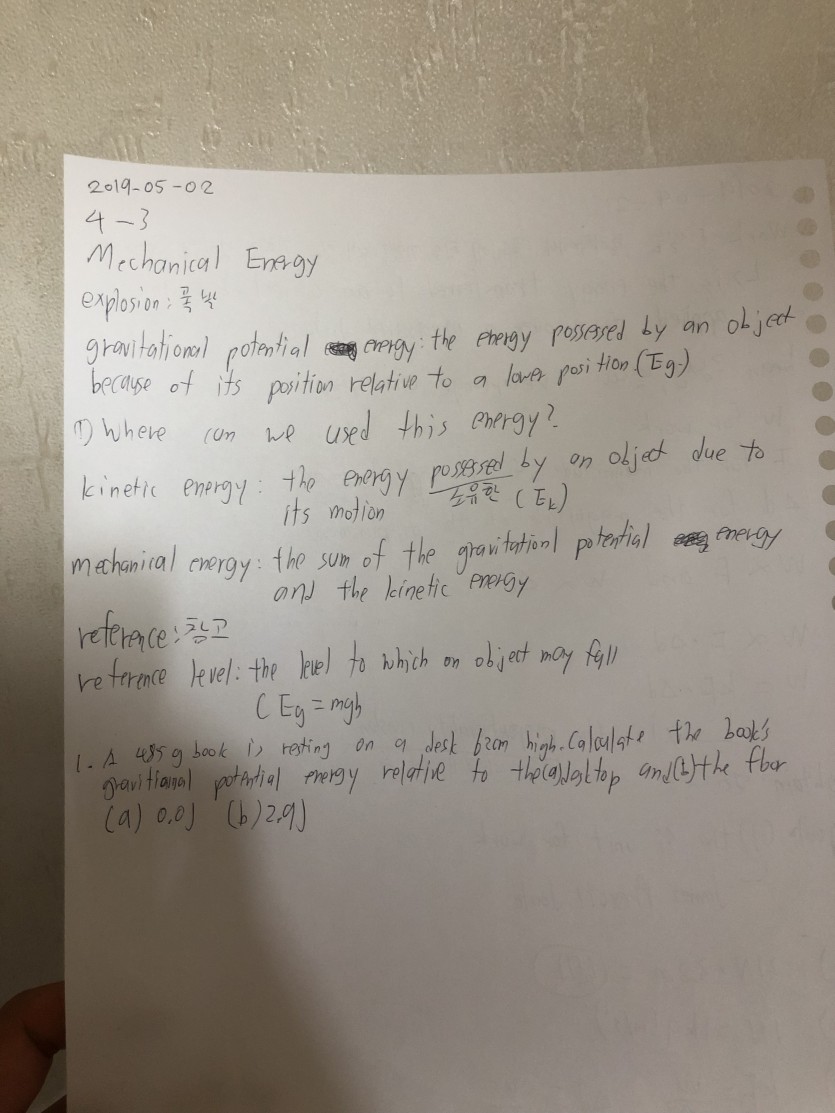 2019-05-02
4-3
Mechanical Energy
explosion: 폭발
gravitational potential energy: the energy possessed by an object
because of its position relative to a lower position (Eg.)
① Where can we used this energy?
kinetic energy: the energy possessed by an object due to
소유한 (Ek)
its motion
mechanical energy: the sum of the gravitationl potential energy
and the kinetic energy
reference: 참고
reference level: the level to which an object may fall
( Eg = mgh
1. A 485 g book is resting on a desk 62cm high. Calculate the book's
gravitianal potential energy relative to the (a) desktop and (b) the floor
(a) 0.0J (b) 2.9J